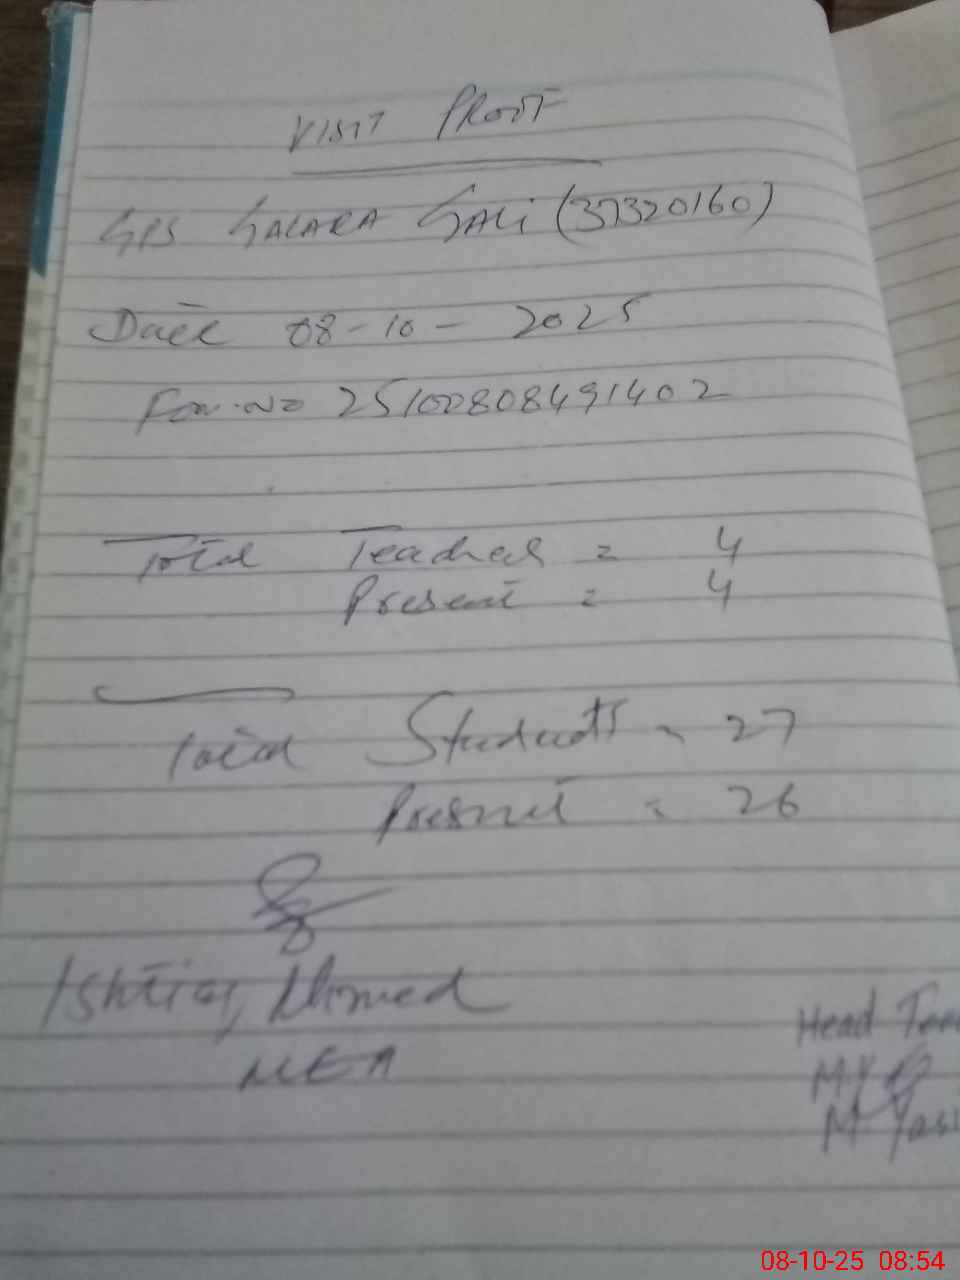 VISIT PROOF
GPS GALARA GALI (37320160)
Date 08-10-2025
For.No 25100808491402
Total Teacher = 4
Present = 4
Total Students = 27
Present = 26
Ishtiaq Ahmed
MEA
Head
M. Yas
08-10-25 08:54